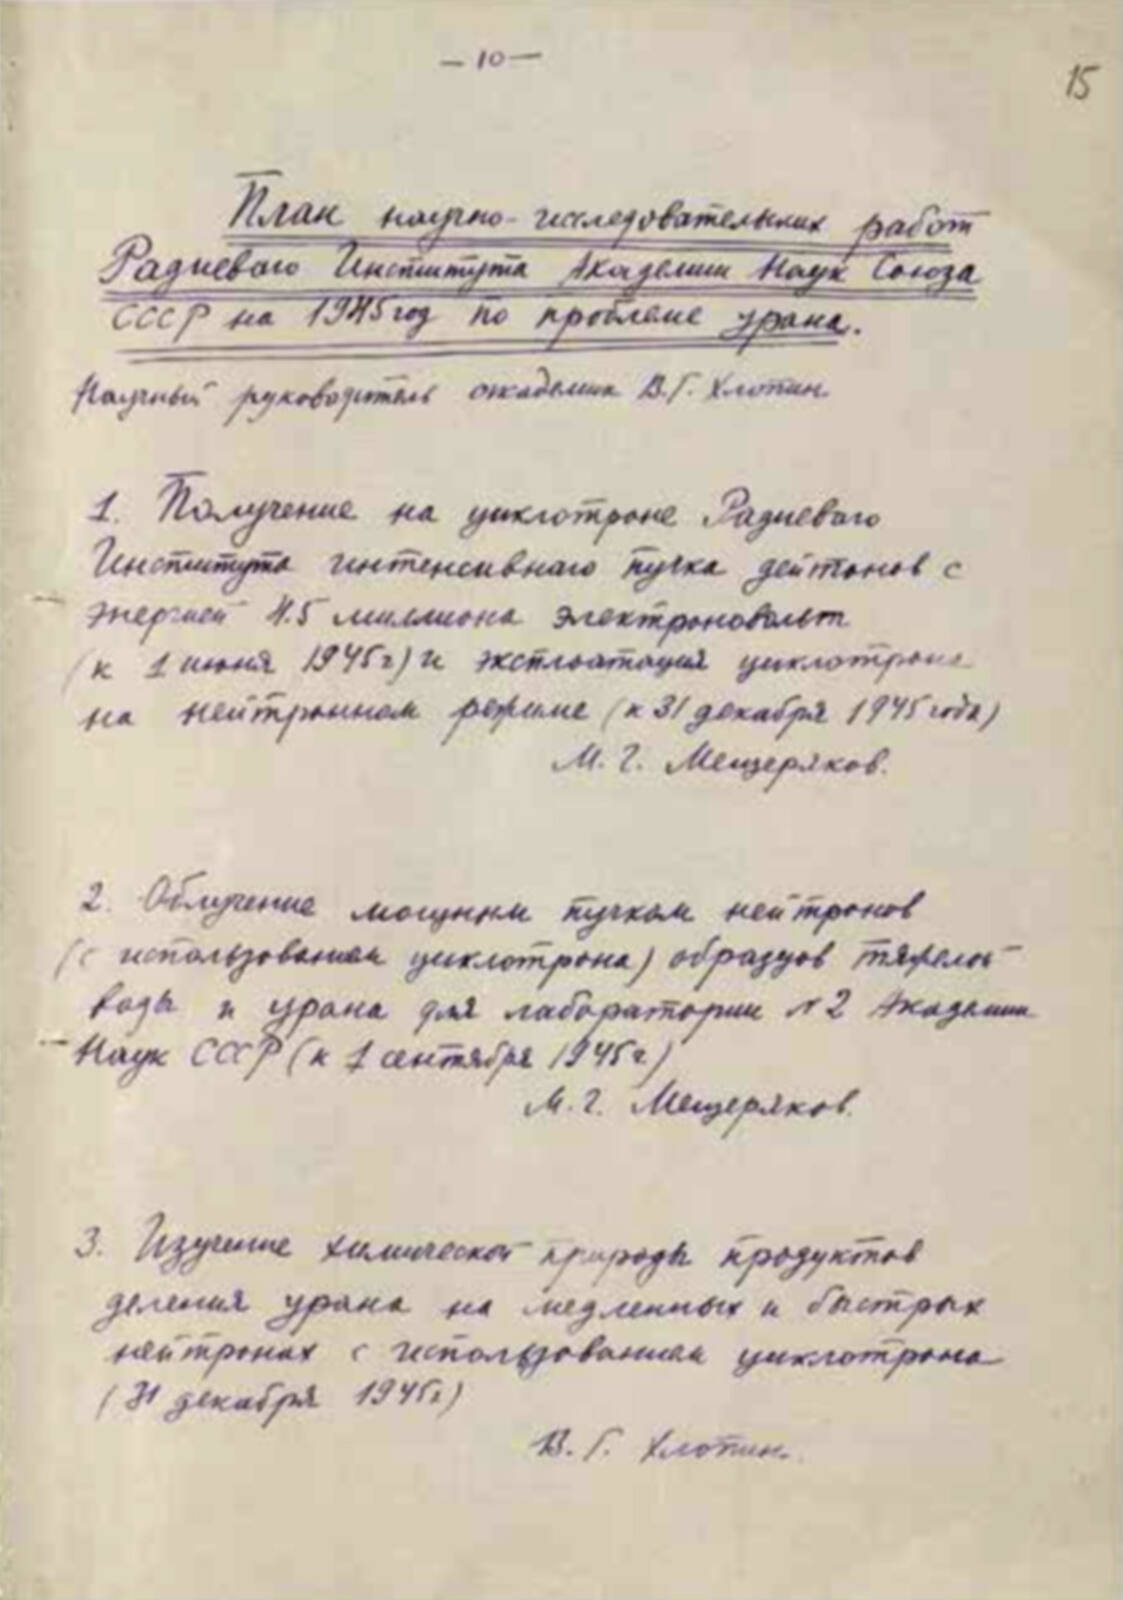 — 10 —
15
План научно-исследовательских работ
Радиевого Института Академии Наук Союза
СССР на 1945 год по проблеме урана.
Научный руководитель академик В.Г. Хлопин.
1. Получение на циклотроне Радиевого
Института интенсивного пучка дейтонов с
энергией 4.5 миллиона электроновольт
(к 1 июня 1945г) и эксплоатация циклотрона
на нейтронном режиме (к 31 декабря 1945 года)
М. Г. Мещеряков.
2. Облучение мощным пучком нейтронов
(с использованием циклотрона) образцов тяжелой
воды и урана для лаборатории №2 Академии
Наук СССР (к 1 сентября 1945г)
М. Г. Мещеряков.
3. Изучение химической природы продуктов
деления урана на медленных и быстрых
нейтронах с использованием циклотрона
(31 декабря 1945г)
В. Г. Хлопин.